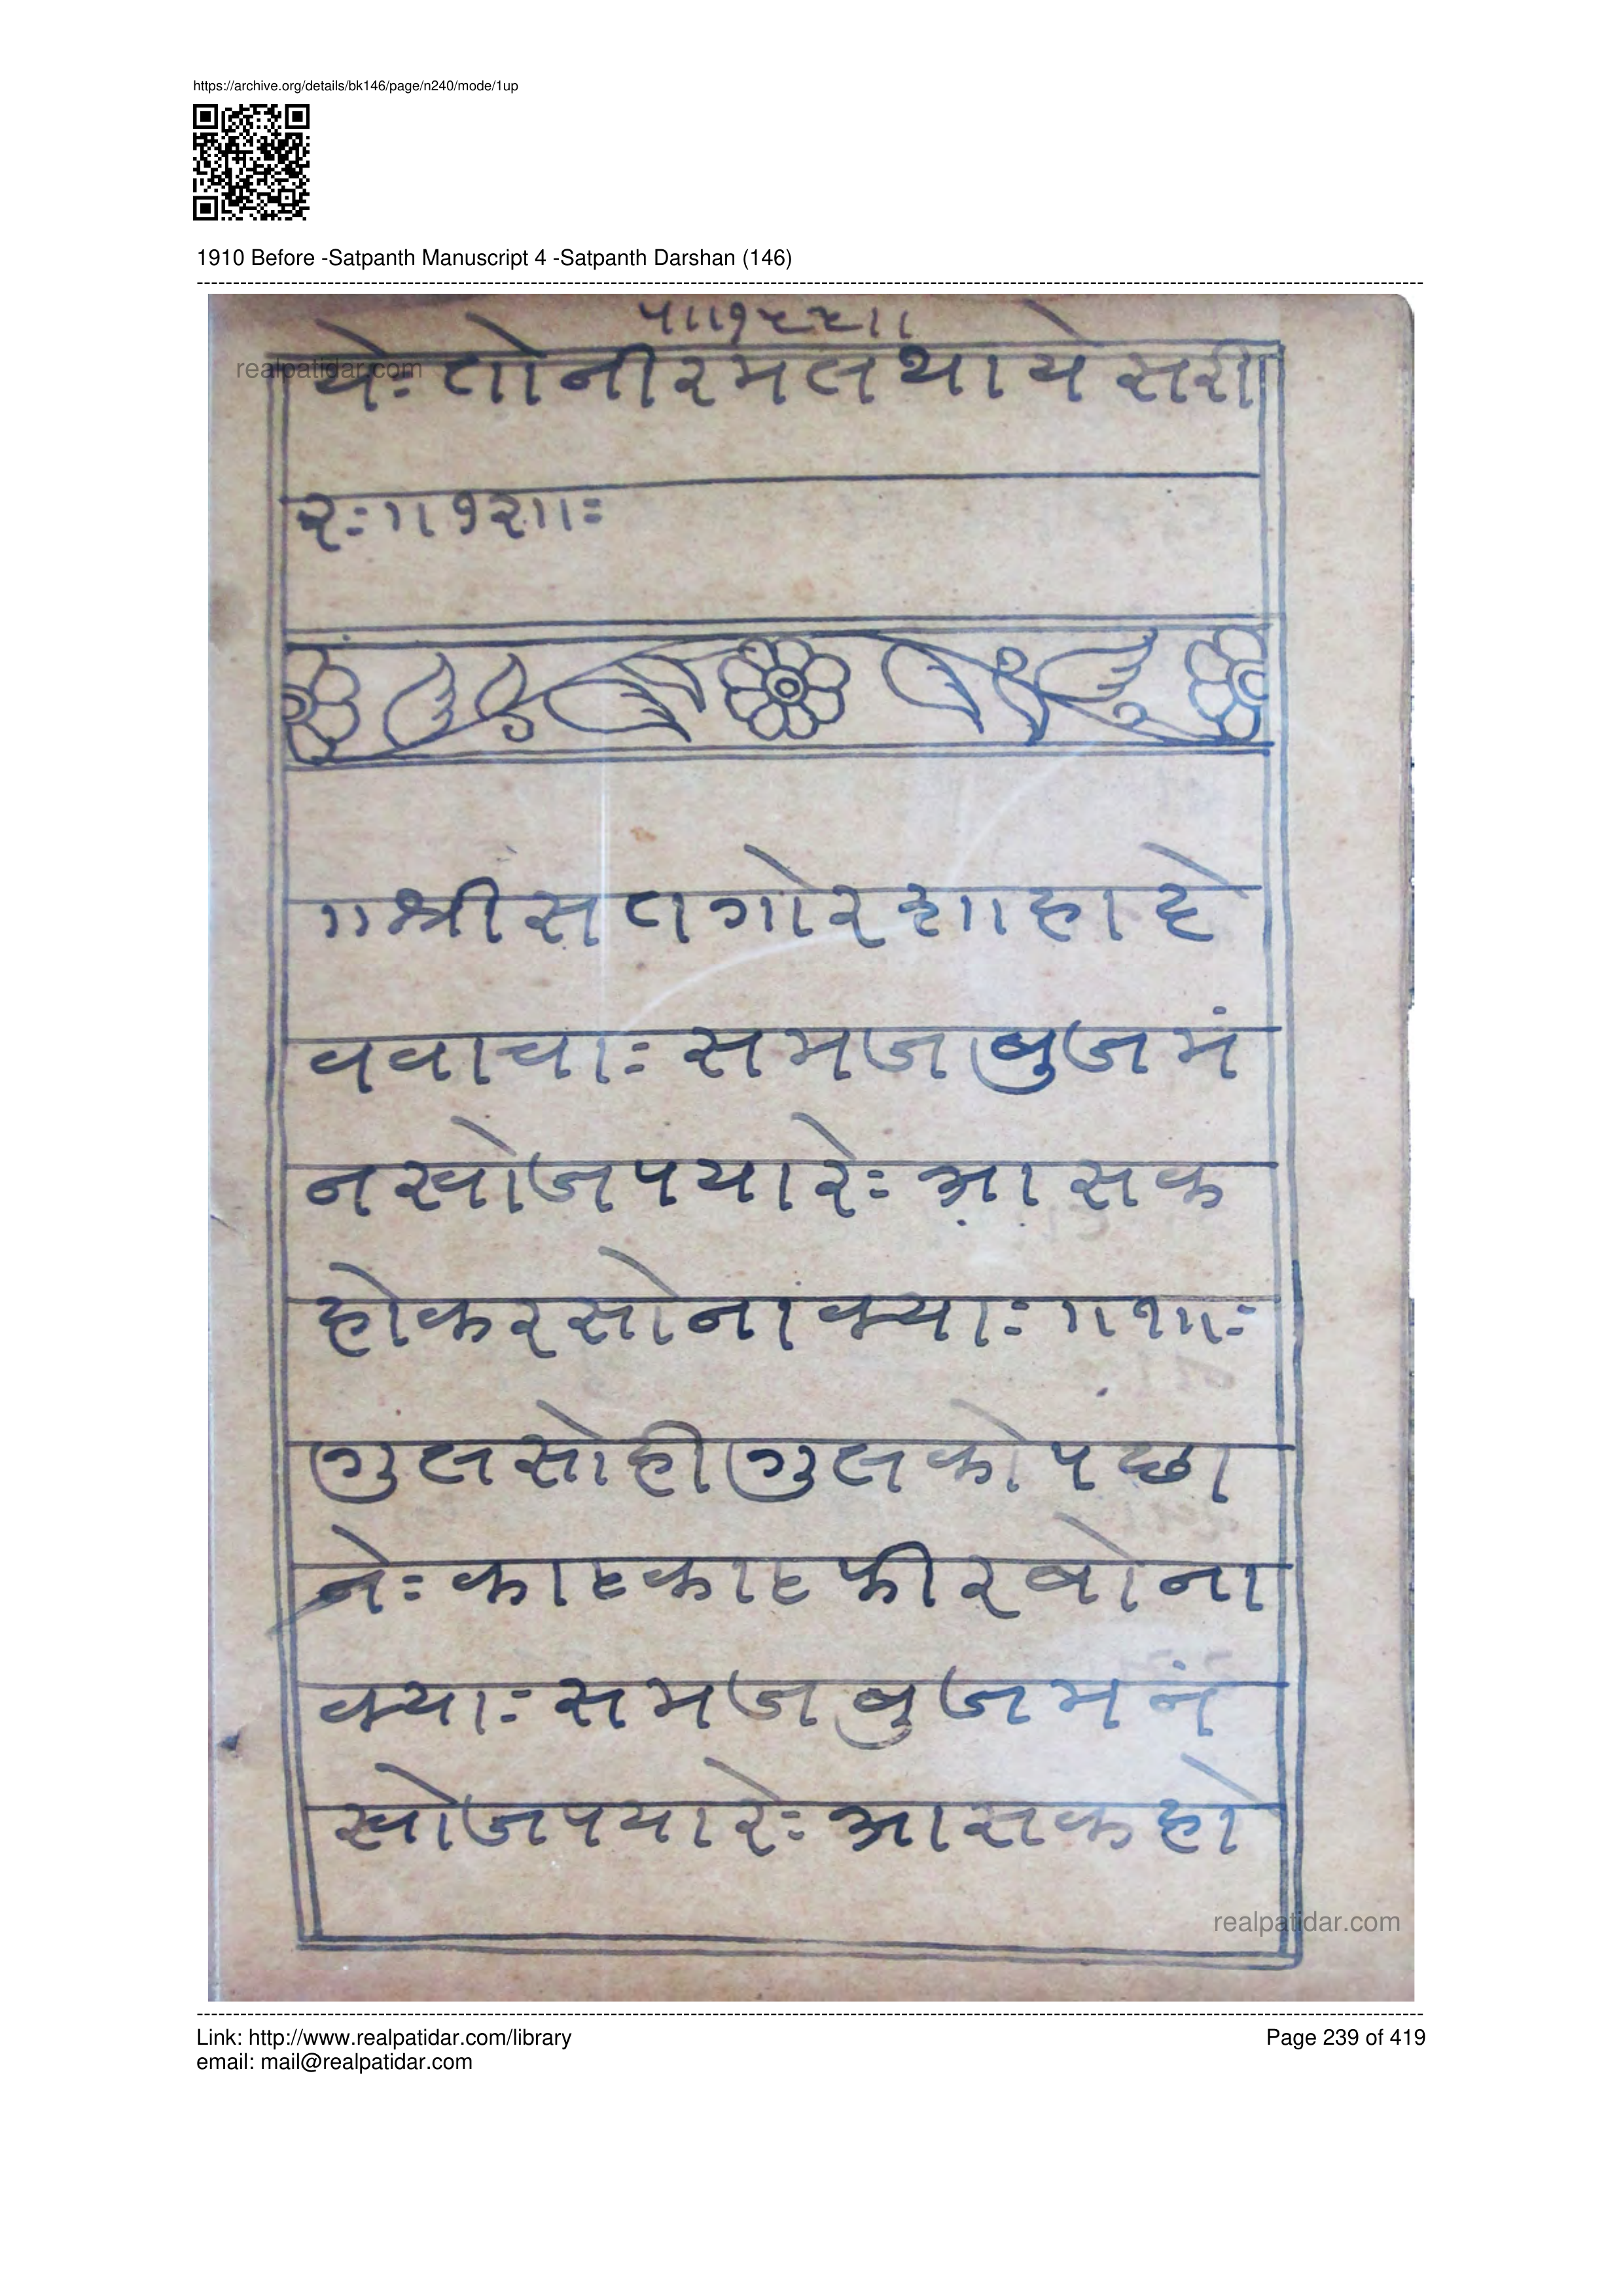 https://archive.org/details/bk146/page/n240/mode/1up
1910 Before -Satpanth Manuscript 4 -Satpanth Darshan (146)
realpatidar.com
येः तो नी र म ल था ये स री
रः॥१२॥ः
॥श्री स त गो र शा हा दे
व वा चाः स म ज बु ज मं
न खो ज प या रेः आ स क
हो क र सो ना क्याः ॥१॥ः
गु ल सो ही गु ल को प छा
नेः का ह का ह फी र बो ना
क्याः स म ज बु ज म नं
खो ज प या रेः आ स क हो
realpatidar.com
Link: http://www.realpatidar.com/library
Page 239 of 419
email: mail@realpatidar.com